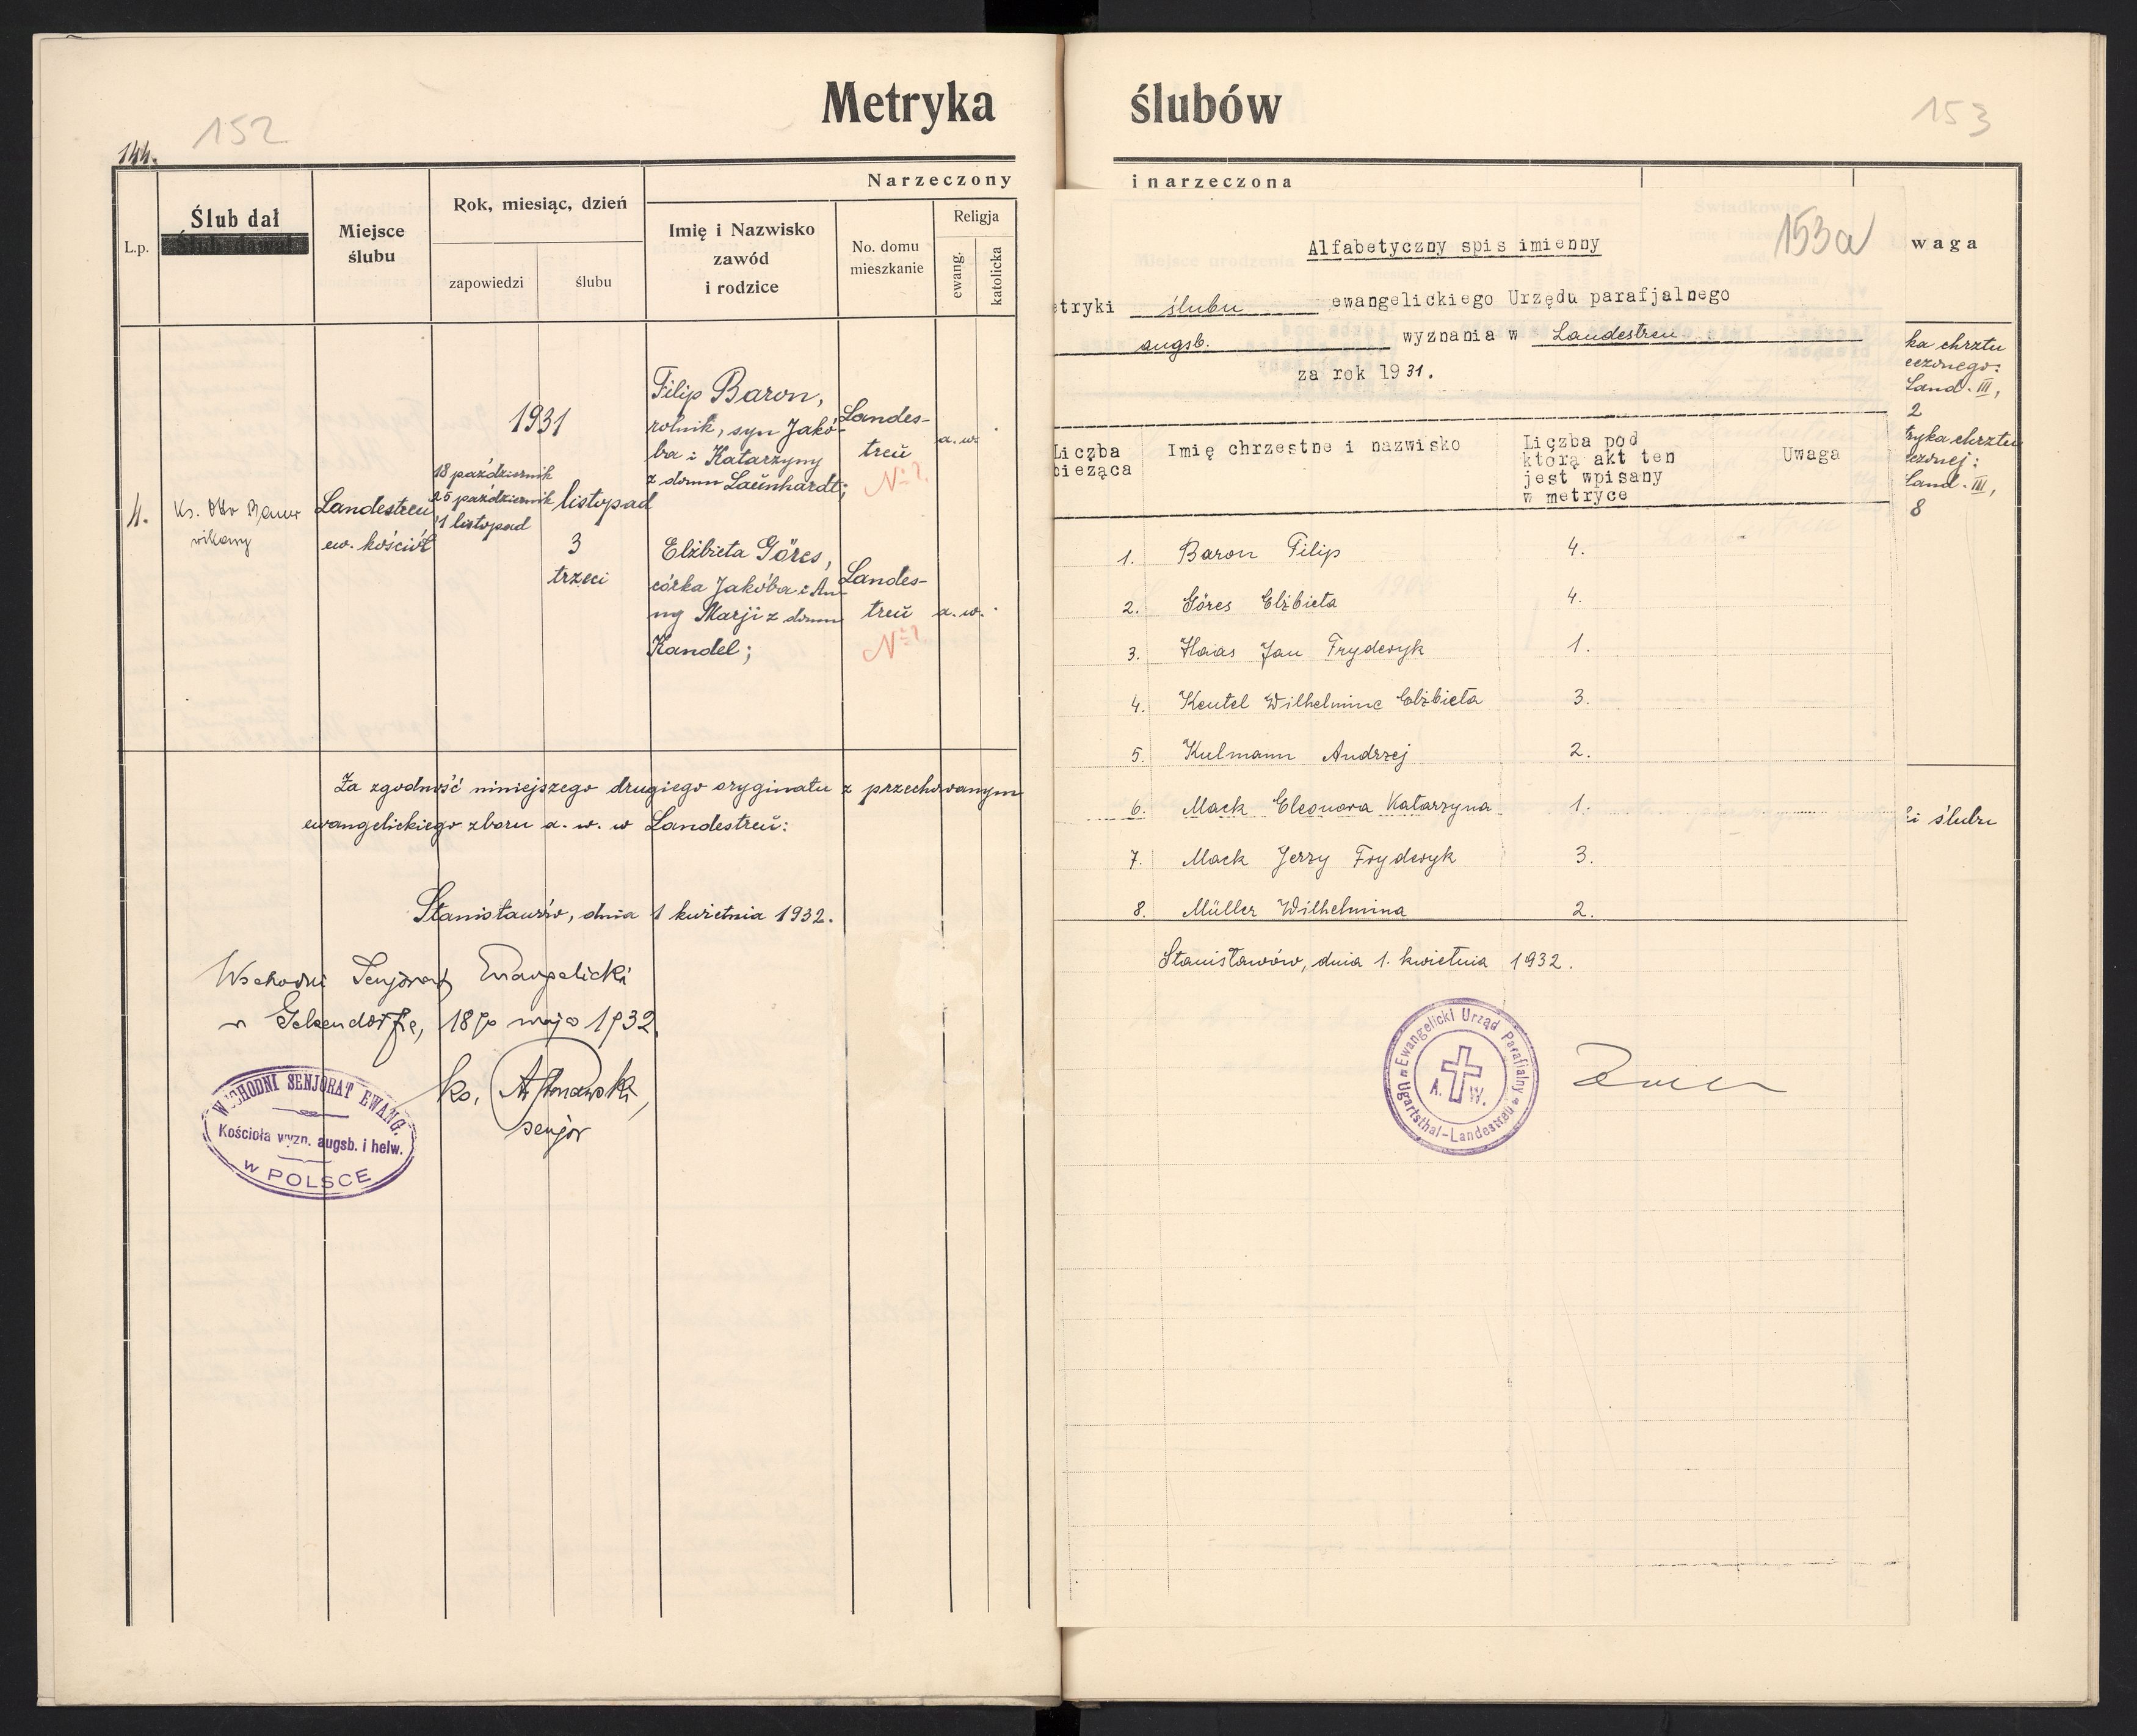 Metryka
152
144.
Narzeczony
L.p.
Ślub dał
Ślub dawał
Miejsce
ślubu
Rok, miesiąc, dzień
zapowiedzi
ślubu
Imię i Nazwisko
zawód
i rodzice
No. domu
mieszkanie
Religja
ewang.
katolicka
4.
Ks. Otto Bauer
wikary
Landestreu
ew. kościół
1931
18 październik
25 październik
1 listopad
listopad
3
trzeci
Filip Baron,
rolnik, syn Jakó-
ba i Katarzyny
z domu Launhardt;
Landes-
treŭ
No ?
a. w.
Elżbieta Göres,
córka Jakóba i An-
ny Marji z domu
Kandel;
Landes-
treŭ
No ?
a. w.
Za zgodność niniejszego drugiego oryginału z przechowanym
ewangelickiego zboru a. w. w Landestreŭ:
Stanisławów, dnia 1 kwietnia 1932.
Wschodni Senjorat Ewangelicki
w Gelsendorfie, 18go maja 1932.
ks.
senjor
WSCHODNI SENJORAT EWANG.
Kościoła wyzn. augsb. i helw.
w POLSCE
ślubów
153
i narzeczona
153a
waga
Alfabetyczny spis imienny
etryki ślubu ewangelickiego Urzędu parafjalnego
augsb. wyznania w Landestreu
za rok 1931.
Liczba
bieżąca
Imię chrzestne i nazwisko
Liczba pod
którą akt ten
jest wpisany
w metryce
Uwaga
1. Baron Filip 4.
2. Göres Elżbieta 4.
3. Haas Jan Fryderyk 1.
4. Keutel Wilhelmine Elżbieta 3.
5. Kulmann Andrzej 2.
6. Mack Eleonora Katarzyna 1.
7. Mack Jerzy Fryderyk 3.
8. Müller Wilhelmina 2.
Stanisławów, dnia 1. kwietnia 1932.
Ewangelicki Urząd Parafialny
Ugartsthal-Landestreu
A. W.
ka chrztu
eczonego:
Land. III,
2
tryka chrztu
eczonej:
Land. III,
8
ki ślubu